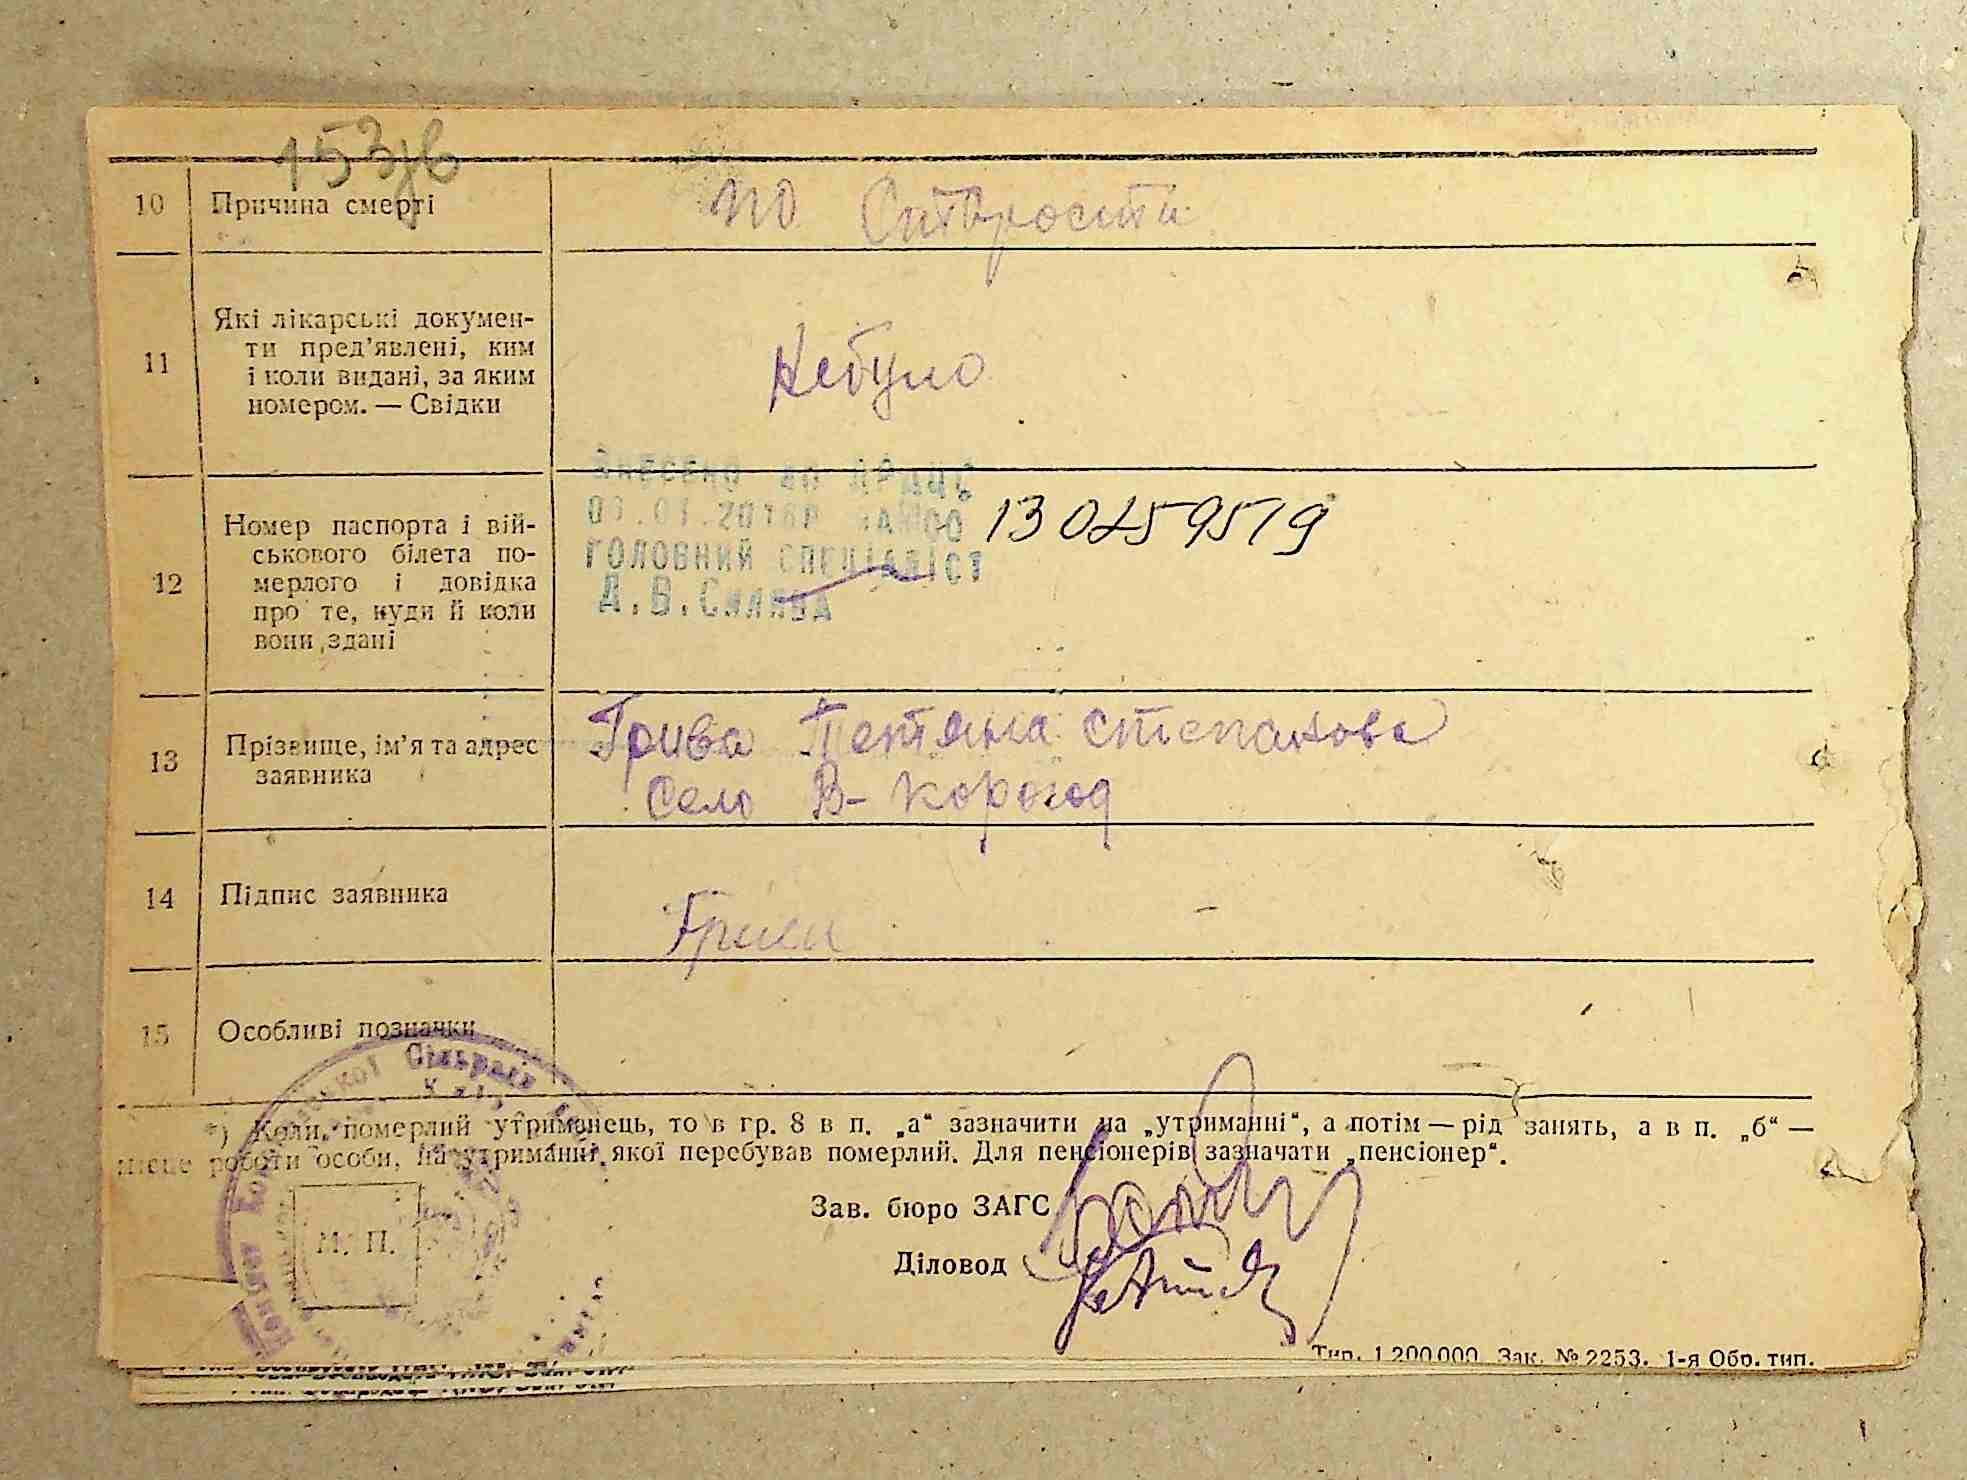 153зв
10 Причина смерті
по Старости
11 Які лікарські докумен-
ти пред'явлені, ким
і коли видані, за яким
номером. — Свідки
Небуло
Внесено до ДРАЦС
ГОЛОВНИЙ СПЕЦІАЛІСТ
13025 9519
12 Номер паспорта і вій-
ськового білета по-
мерлого і довідка
про те, куди й коли
вони здані
13 Прізвище, ім'я та адрес
заявника
Грива Тетяна степанова
село В-корогод
14 Підпис заявника
Грива
15 Особливі позначки
*) Коли померлий утриманець, то в гр. 8 в п. „а“ зазначити на „утриманні“, а потім — рід занять, а в п. „б“ —
місце роботи особи, на утриманні якої перебував померлий. Для пенсіонерів зазначати „пенсіонер“.
Сільради
М. П.
Зав. бюро ЗАГС
Діловод
Тип. 1.200.000 Зак. № 2253. 1-я Обр. тип.